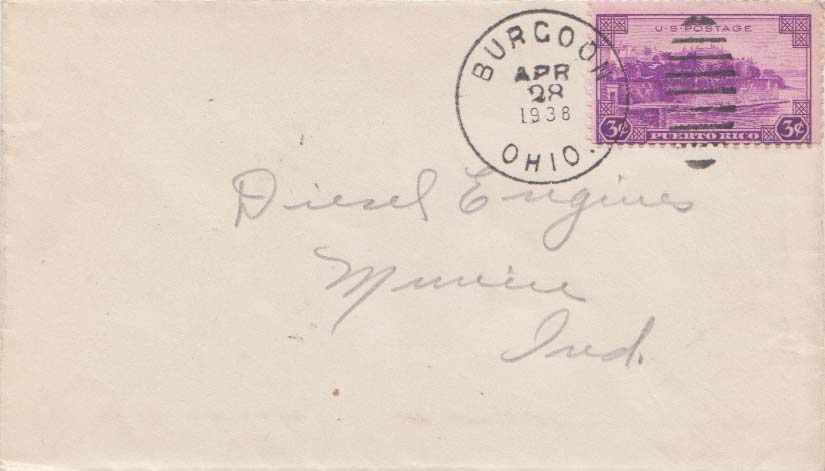 BURGOON
APR
28
1938
OHIO.
U·S·POSTAGE
3¢ PUERTO RICO 3¢
Diesel Engines
Muncie
Ind.